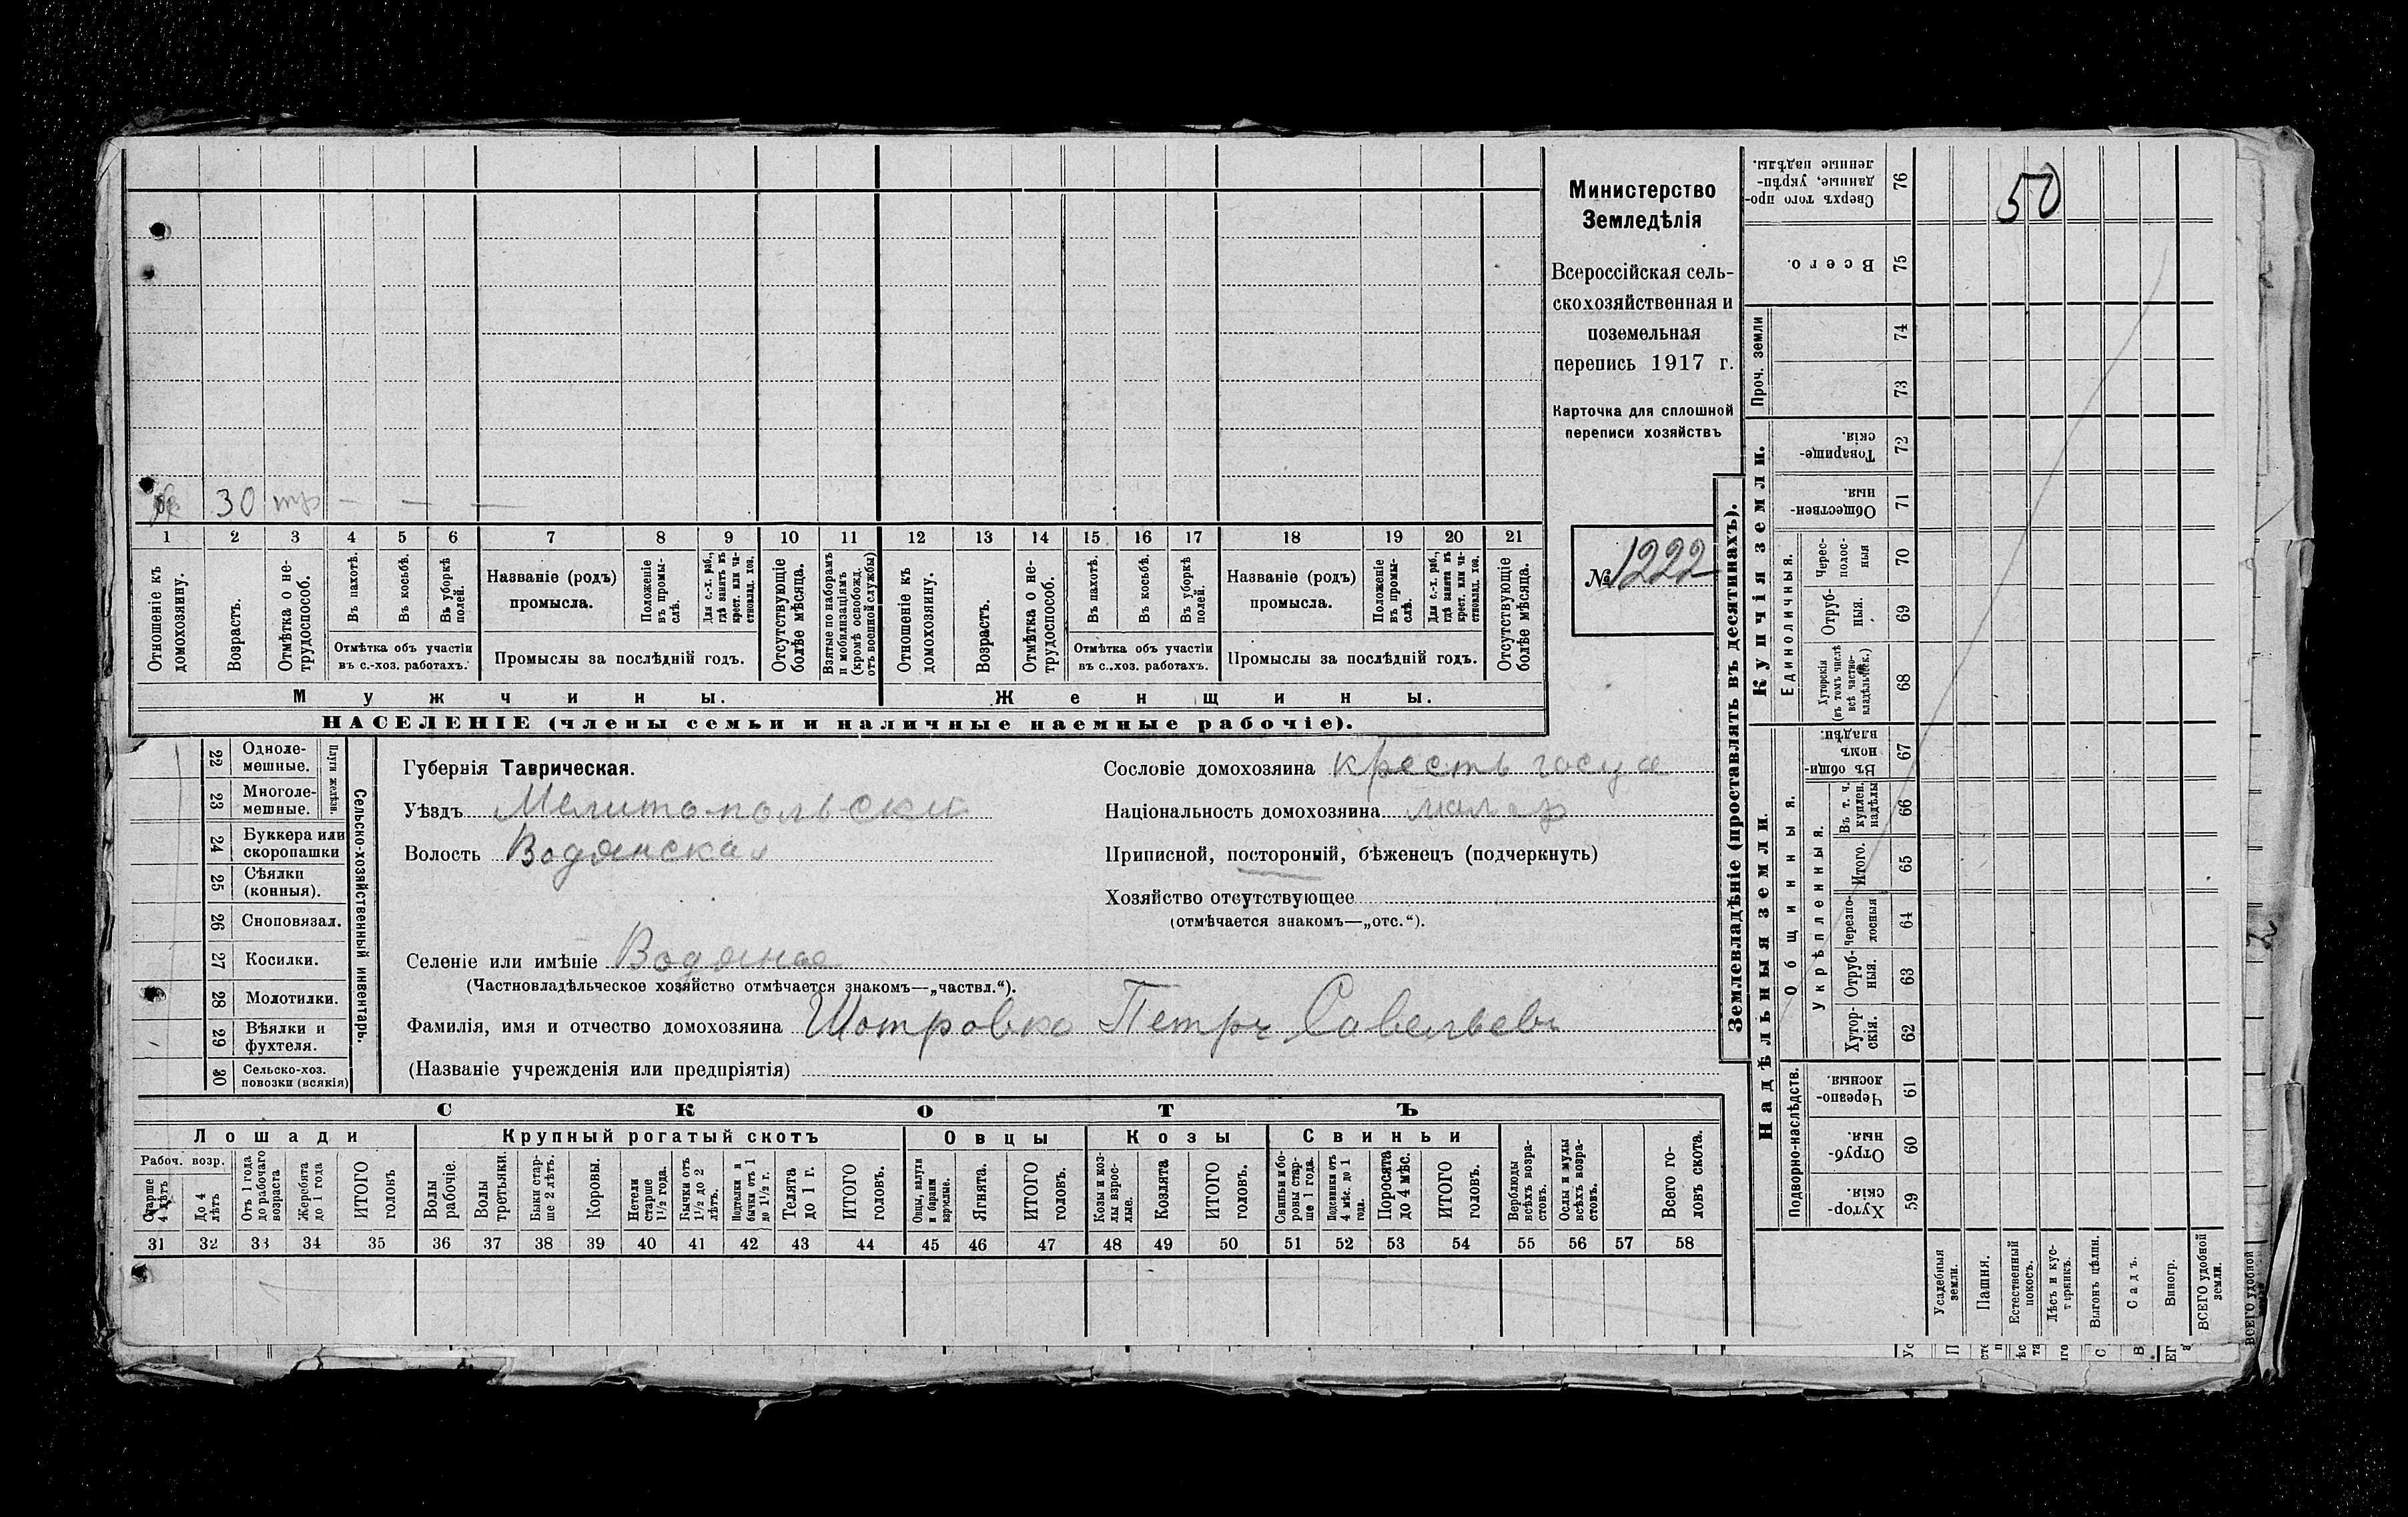 Министерство
Земледѣлія
Всероссійская сель-
скохозяйственная и
поземельная
перепись 1917 г.
Карточка для сплошной
переписи хозяйствъ
№ 1222
50
30
1 2 3 4 5 6 7 8 9 10 11 12 13 14 15 16 17 18 19 20 21
Отношеніе къ домохозяину.
Возрастъ.
Отмѣтка о не-трудоспособ.
Въ пахотѣ.
Въ косьбѣ.
Въ уборкѣ полей.
Отмѣтка объ участіи
въ с.-хоз. работахъ.
Названіе (родъ)
промысла.
Положеніе въ промы-слѣ.
Для с.-х. раб., гдѣ занятъ въ крест. или ча-стновлад. хоз.
Промыслы за послѣдній годъ.
Отсутствующіе болѣе мѣсяца.
Взятые по наборамъ и мобилизаціямъ (кромѣ освобожд. отъ военной службы)
Отношеніе къ домохозяину.
Возрастъ.
Отмѣтка о не-трудоспособ.
Въ пахотѣ.
Въ косьбѣ.
Въ уборкѣ полей.
Отмѣтка объ участіи
въ с.-хоз. работахъ.
Названіе (родъ)
промысла.
Положеніе въ промы-слѣ.
Для с.-х. раб., гдѣ занята въ крест. или ча-стновлад. хоз.
Промыслы за послѣдній годъ.
Отсутствующіе болѣе мѣсяца.
Мужчины. Женщины.
НАСЕЛЕНІЕ (члены семьи и наличные наемные рабочіе).
22 Одноле-мешные.
23 Многоле-мешные.
Плуги желѣзн.
24 Буккера или скоропашки
25 Сѣялки (конныя).
26 Сноповязал.
27 Косилки.
28 Молотилки.
29 Вѣялки и фухтеля.
30 Сельско-хоз. повозки (всякія)
Сельско-хозяйственный инвентарь.
Губернія Таврическая.
Уѣздъ Мелитопольски
Волость Водянская
Селеніе или имѣніе Водяное
(Частновладѣльческое хозяйство отмѣчается знакомъ—„частвл.“).
Фамилія, имя и отчество домохозяина Шотровка Петръ Савельевъ
(Названіе учрежденія или предпріятія)
Сословіе домохозяина крестъ госуд
Національность домохозяина малор
Приписной, посторонній, бѣженецъ (подчеркнуть)
Хозяйство отсутствующее
(отмѣчается знакомъ—„отс.“).
СКОТЪ
Лошади Крупный рогатый скотъ Овцы Козы Свиньи
Рабоч. возр.
Старше 4 лѣтъ
До 4 лѣтъ
Отъ 1 года до рабочаго возраста
Жеребята до 1 года
ИТОГО головъ
Волы рабочіе.
Волы третьяки.
Быки стар-ше 2 лѣтъ.
Коровы.
Нетели старше 1½ года.
Бычки отъ 1½ до 2 лѣтъ.
Подтелки и бычки отъ 1 до 1½ г.
Телята до 1 г.
ИТОГО головъ.
Овцы, валухи и бараны взрослые.
Ягнята.
ИТОГО головъ.
Козы и коз-лы взрос-лые.
Козлята
ИТОГО головъ.
Свиньи и бо-ровы стар-ше 1 года.
Подсвинки отъ 4 мѣс. до 1 года.
Поросята до 4 мѣс.
ИТОГО головъ.
Верблюды всѣхъ возра-стовъ.
Ослы и мулы всѣхъ возра-стовъ.
Всего го-ловъ скота.
31 32 33 34 35 36 37 38 39 40 41 42 43 44 45 46 47 48 49 50 51 52 53 54 55 56 57 58
Землевладѣніе (проставлять въ десятинахъ).
Надѣльныя земли. Купчія земли. Проч. земли
Подворно-наслѣдств.
Общинныя.
Укрѣпленныя.
Единоличныя.
Сверхъ того про-данные, укрѣп-ленные надѣлы. 76
Всего. 75
74
73
Товарище-скія. 72
Обществен-ныя. 71
Черес-полос-ныя 70
Отруб-ныя. 69
Хуторскія (въ томъ числѣ всѣ частно-владѣльческ.) 68
Въ общин-номъ владѣн. 67
Въ т. ч. куплен. надѣлы 66
Итого. 65
Черезпо-лосныя 64
Отруб-ныя. 63
Хутор-скія. 62
Черезпо-лосныя. 61
Отруб-ныя. 60
Хутор-скія. 59
Усадебныя земли.
Пашня.
Естественный покосъ.
Лѣсъ и кус-тарникъ.
Выгонъ цѣлин.
Садъ.
Виногр.
ВСЕГО удобной земли.
ВСЕГО удобной